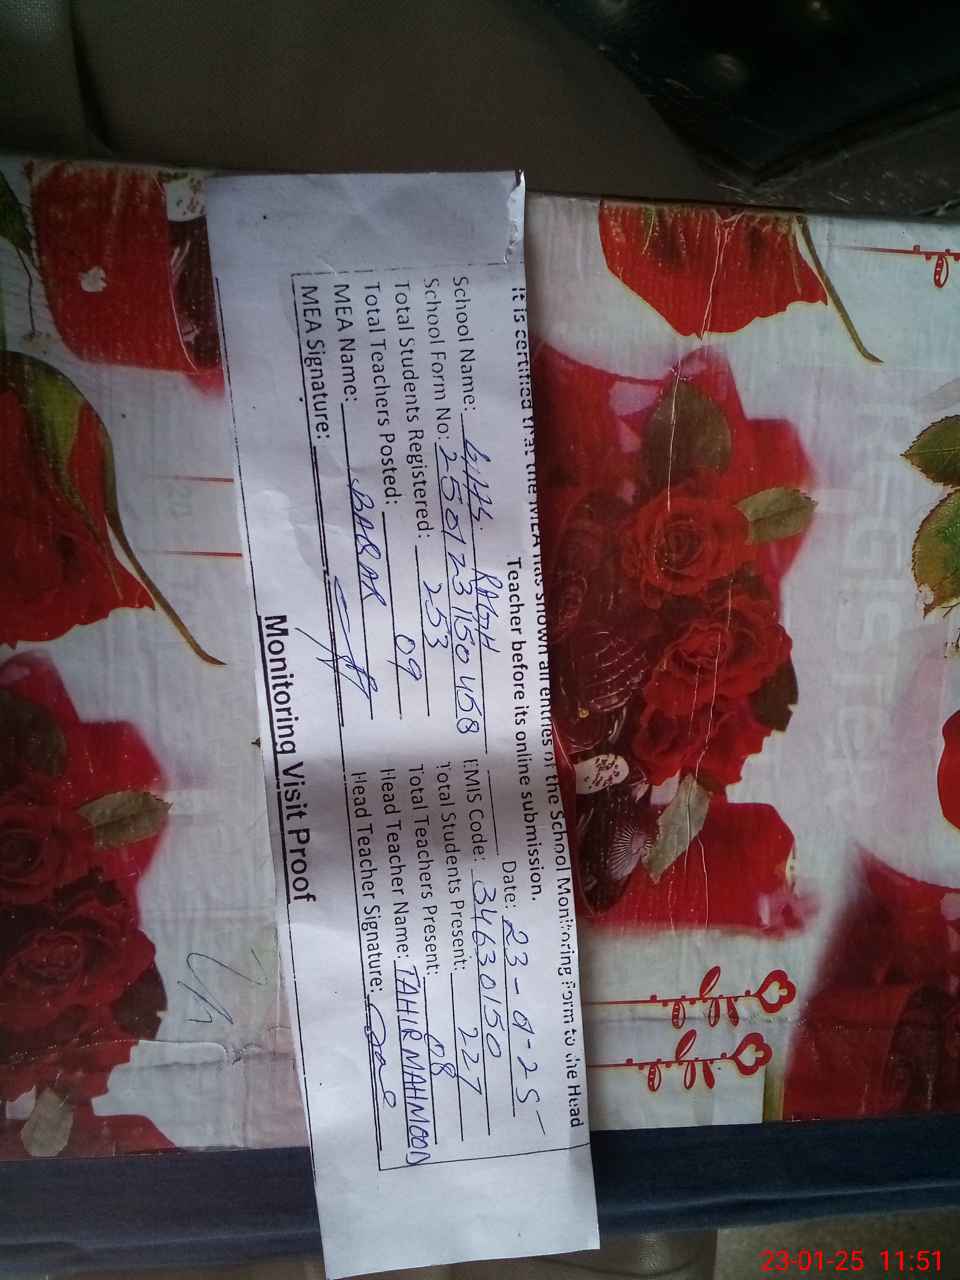 It is certified that the MEA has shown all entries of the School Monitoring Form to the Head
Teacher before its online submission.
Date: 23-01-25
School Name: GHS RAGH EMIS Code: 34630150
School Form No: Total Students Present: 227
Total Students Registered: 253 Total Teachers Present: 08
Total Teachers Posted: 09 Head Teacher Name: TAHIR MAHMOOD
MEA Name: BABAR Head Teacher Signature:
MEA Signature:
Monitoring Visit Proof
23-01-25 11:51